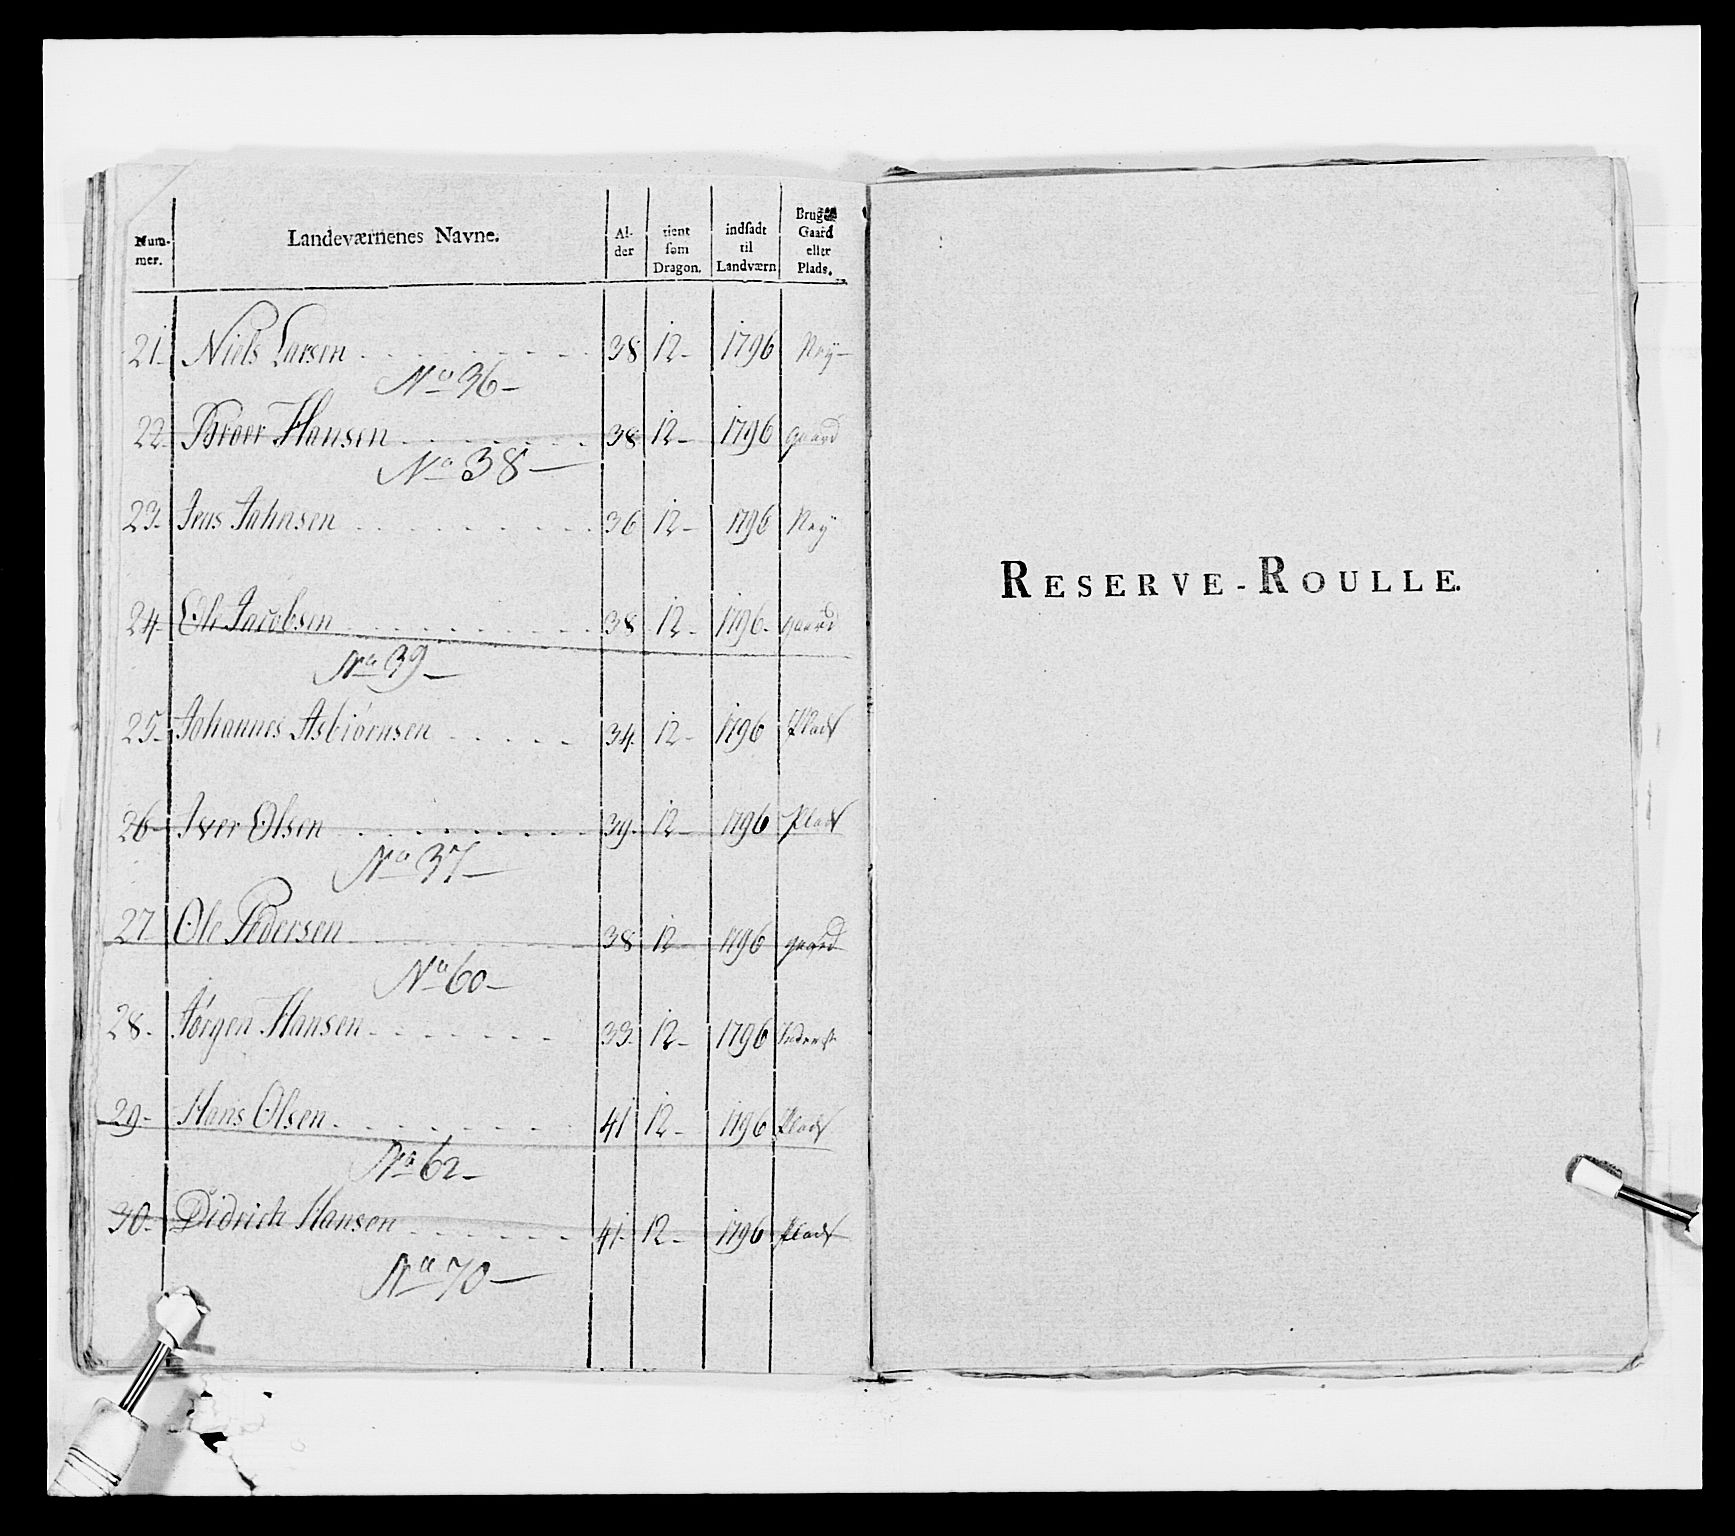 Num-
mer.
Landeværnenes Navne.
Al-
der
tient
som
Dragon.
indsadt
til
Landværn
Bruger
Gaard
eller
Plads.
21. Niels Larsen 38 12 1796 Ney
No 36
22. Broer Hansen 38 12 1796 gaard
No 38
23. Jens Johnsen 36 12 1796 Ney
24. Ole Jacobsen 38 12 1796 gaard
No 39
25. Johannes Asbiørnsen 34 12 1796 Plads
26 Iver Olsen 39 12 1796 Plads
No 37
27 Ole Pedersen 38 12 1796 gaard
No 60
28. Jørgen Hansen 33 12 1796
29 Hans Olsen 41 12 1796 Plads
No 62
30 Didrich Hansen 41 12 1796 Plads
No 70
RESERVE-ROULLE.